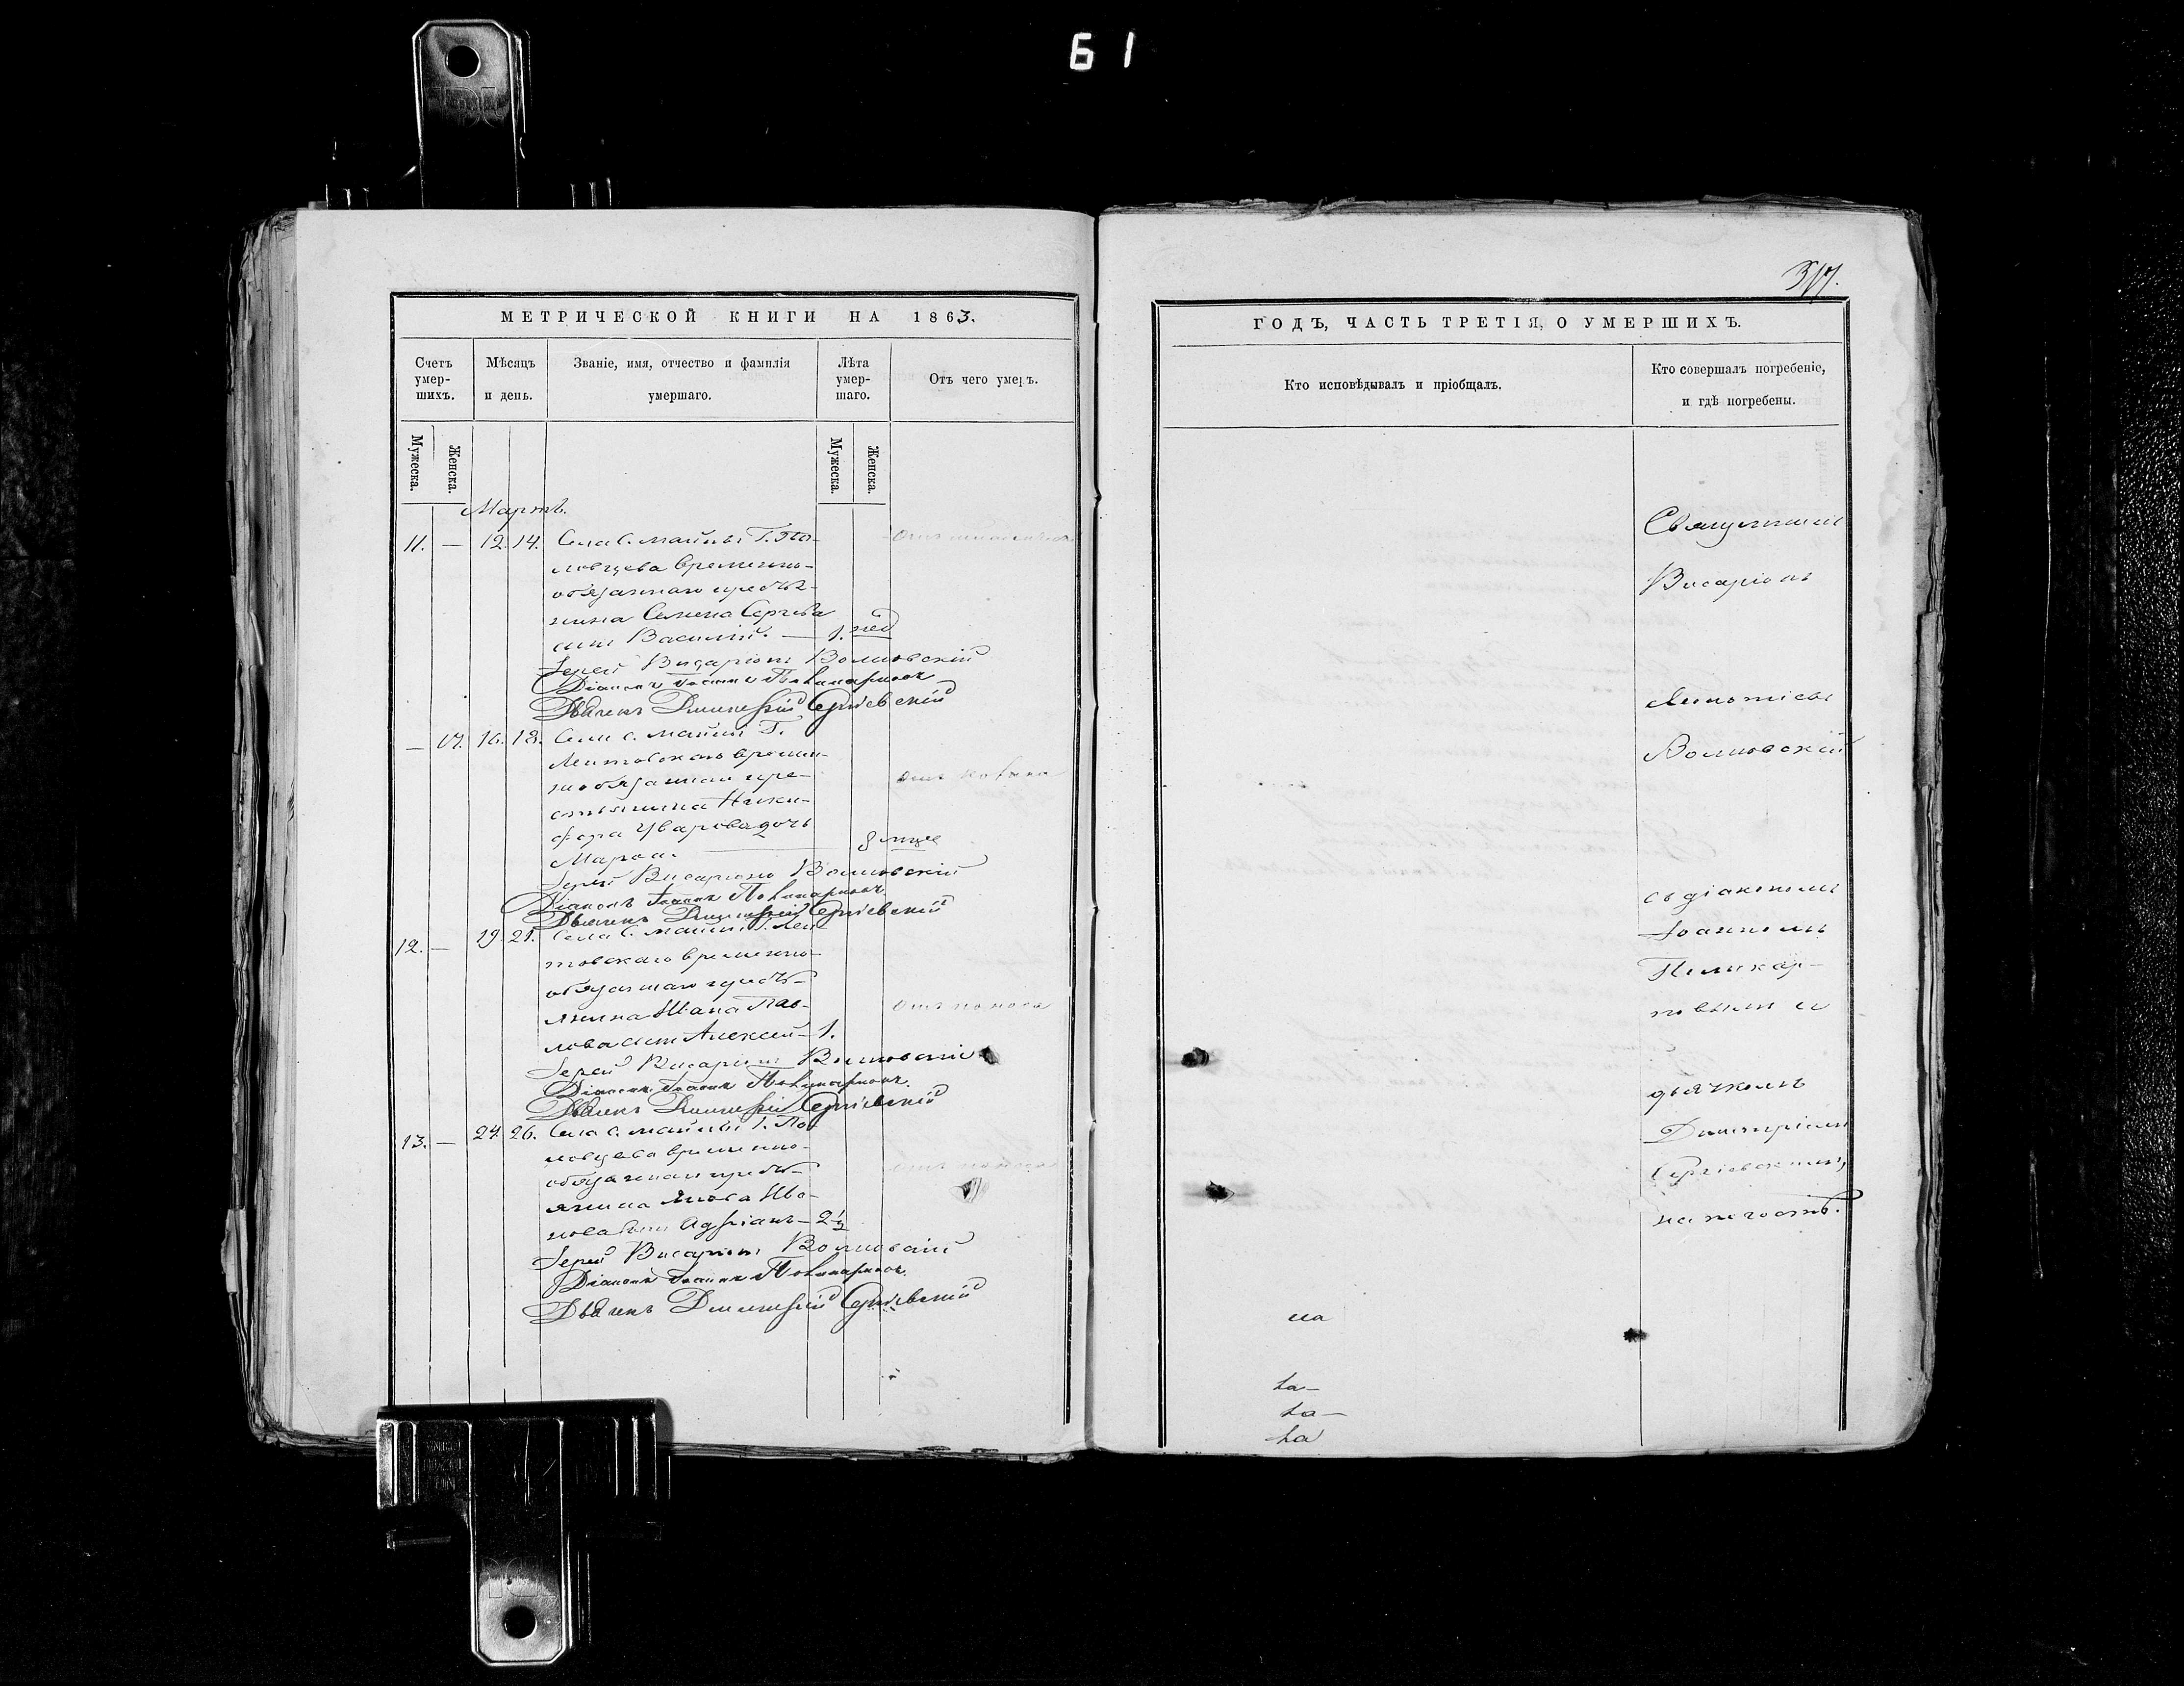 61
317.
МЕТРИЧЕСКОЙ КНИГИ НА 1863.
Счетъ умер-шихъ.
Мѣсяцъ и день.
Званіе, имя, отчество и фамилія умершаго.
Лѣта умер-шаго.
Отъ чего умеръ.
Мужеска.
Женска.
Мужеска.
Женска.
Мартъ.
11. — 12. 14. Села С. Майны Г. По-
ловцева временно-
обязаннаго кресть-
янина Семена Сергѣева
сынъ Василій. — 1. нед
Іерей Висаріонъ Волновскій
Діаконъ Іоаннъ Поликарповъ
Дьячекъ Димитрій Сергіевскій
— 17. 16. 18. Села С. Майны Г.
временно-
обязаннаго кре-
стьянина Ники-
фора Уварова дочь
Марѳа. — 8 мцѣ
Іерей Висаріонъ Волновскій
Діаконъ Іоаннъ Поликарповъ
Дьячекъ Димитрій Сергіевскій
12. — 19. 21. Села С. Майны Г.
временно-
обязаннаго кресть-
янина Ивана Пав-
лова сынъ Алексѣй — 1.
отъ поноса
Іерей Висаріонъ Волновскій
Діаконъ Іоаннъ Поликарповъ.
Дьячекъ Димитрій Сергіевскій
13. — 24. 26. Села С. Майны Г. По-
ловцева временно-
обязаннаго кресть-
янина Якова Ива-
нова сынъ Адріанъ — 2 ½
отъ поноса
Іерей Висаріонъ Волновскій
Діаконъ Іоаннъ Поликарповъ.
Дьячекъ Димитрій Сергіевскій
ГОДЪ, ЧАСТЬ ТРЕТІЯ, О УМЕРШИХЪ.
Кто исповѣдывалъ и пріобщалъ.
Кто совершалъ погребеніе,
и гдѣ погребены.
Священникъ
Висаріонъ
Волновскій
съ діакономъ
Іоанномъ
Поликар-
повымъ и
дьячкомъ
Димитріемъ
Сергіевскимъ,
на погостѣ.